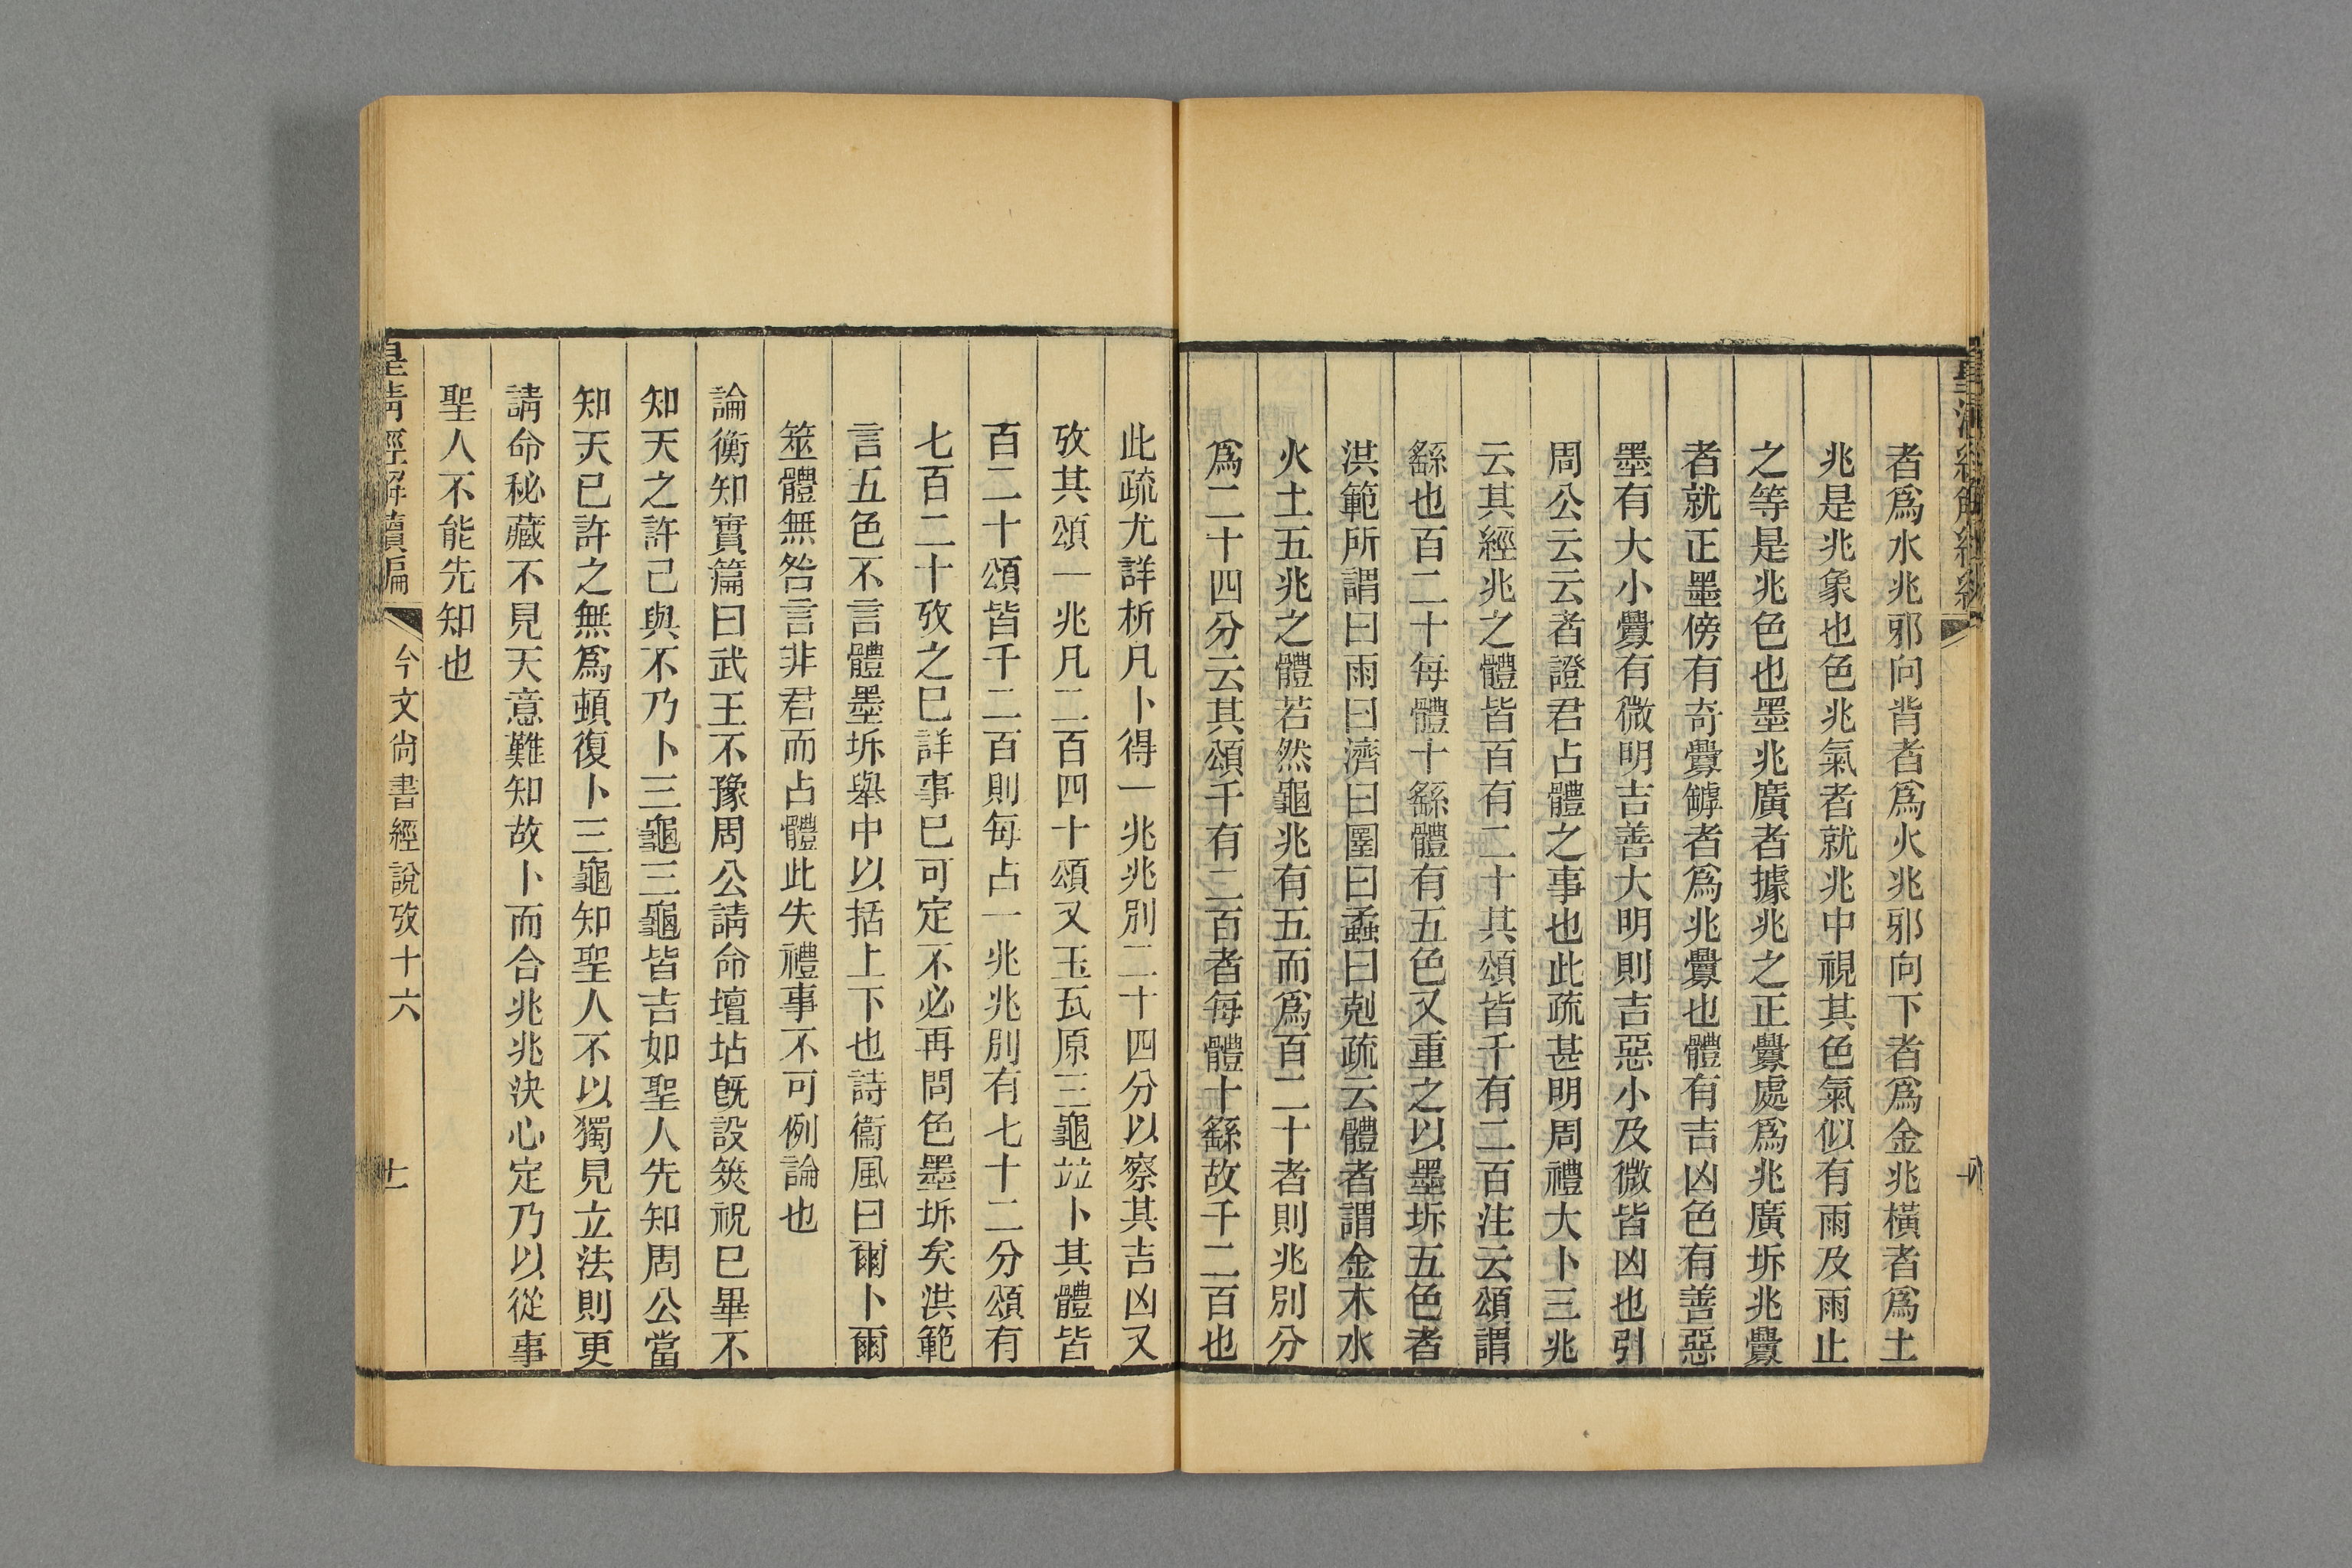 者爲水兆邪向背者爲火兆邪向下者爲金兆橫者爲土
兆是兆象也色兆氣者就兆中視其色氣似有雨及雨止
之等是兆色也墨兆廣者據兆之正釁處爲兆廣坼兆釁
者就正墨傍有奇釁罅者爲兆釁也體有吉凶色有善惡
墨有大小釁有微明吉善大明則吉惡小及微皆凶也引
周公云云者證君占體之事也此疏甚明周禮大卜三兆
云其經兆之體皆百有二十其頌皆千有二百注云頌謂
繇也百二十每體十繇體有五色又重之以墨坼五色者
洪範所謂曰雨曰濟曰圛曰蟊曰剋疏云體者謂金木水
火土五兆之體若然龜兆有五而爲百二十者則兆別分
爲二十四分云其頌千有二百者每體十繇故千二百也
此疏尤詳析凡卜得一兆兆別二十四分以察其吉凶又
攷其頌一兆凡二百四十頌又玉瓦原三龜竝卜其體皆
百二十頌皆千二百則每占一兆兆別有七十二分頌有
七百二十攷之巳詳事巳可定不必再問色墨坼矣洪範
言五色不言體墨坼舉中以括上下也詩衞風曰爾卜爾
筮體無咎言非君而占體此失禮事不可例論也
論衡知實篇曰武王不豫周公請命壇坫旣設筴祝巳畢不
知天之許己與不乃卜三龜三龜皆吉如聖人先知周公當
知天已許之無爲頓復卜三龜知聖人不以獨見立法則更
請命秘藏不見天意難知故卜而合兆兆決心定乃以從事
聖人不能先知也
皇清經解續編
今文尙書經說攷十六